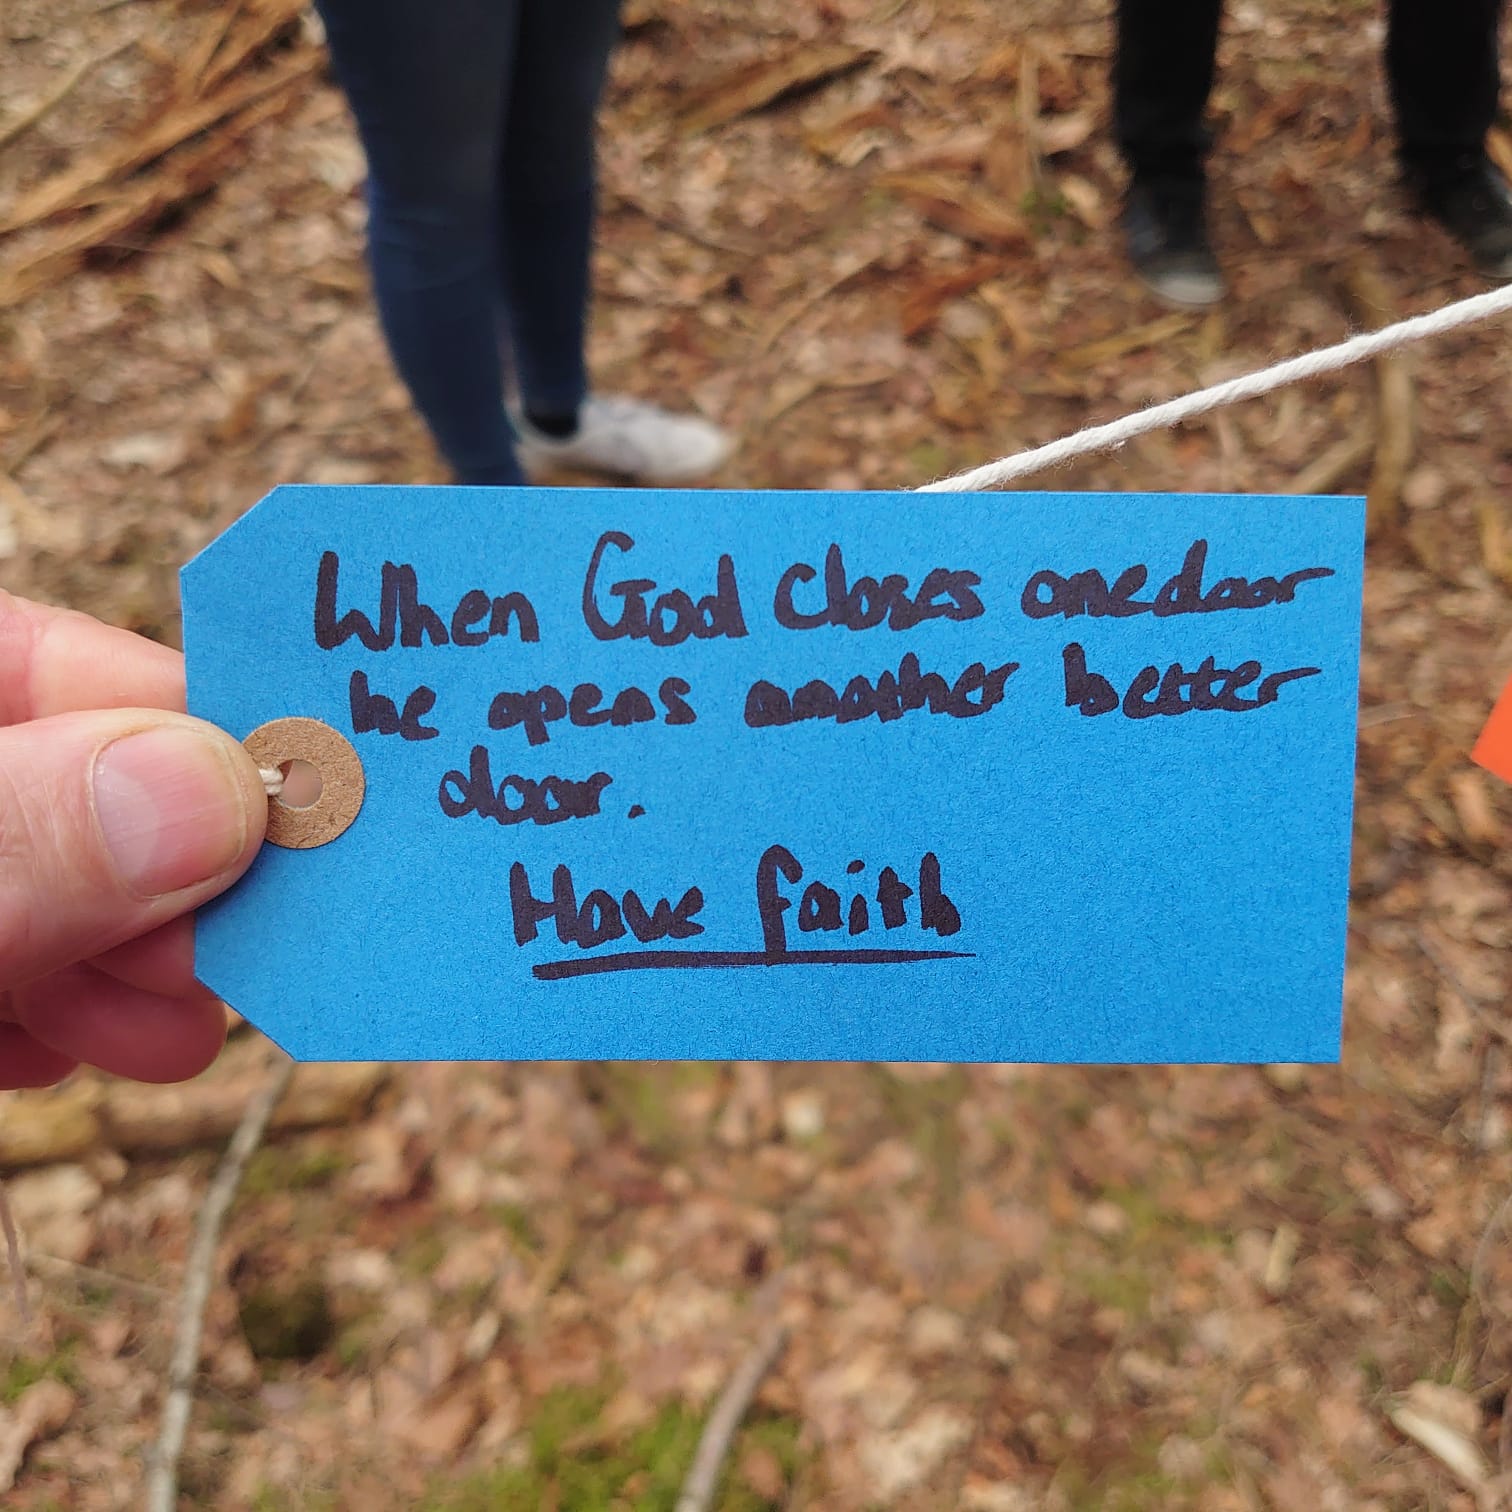 When God closes one door
he opens another better
door.
Have faith